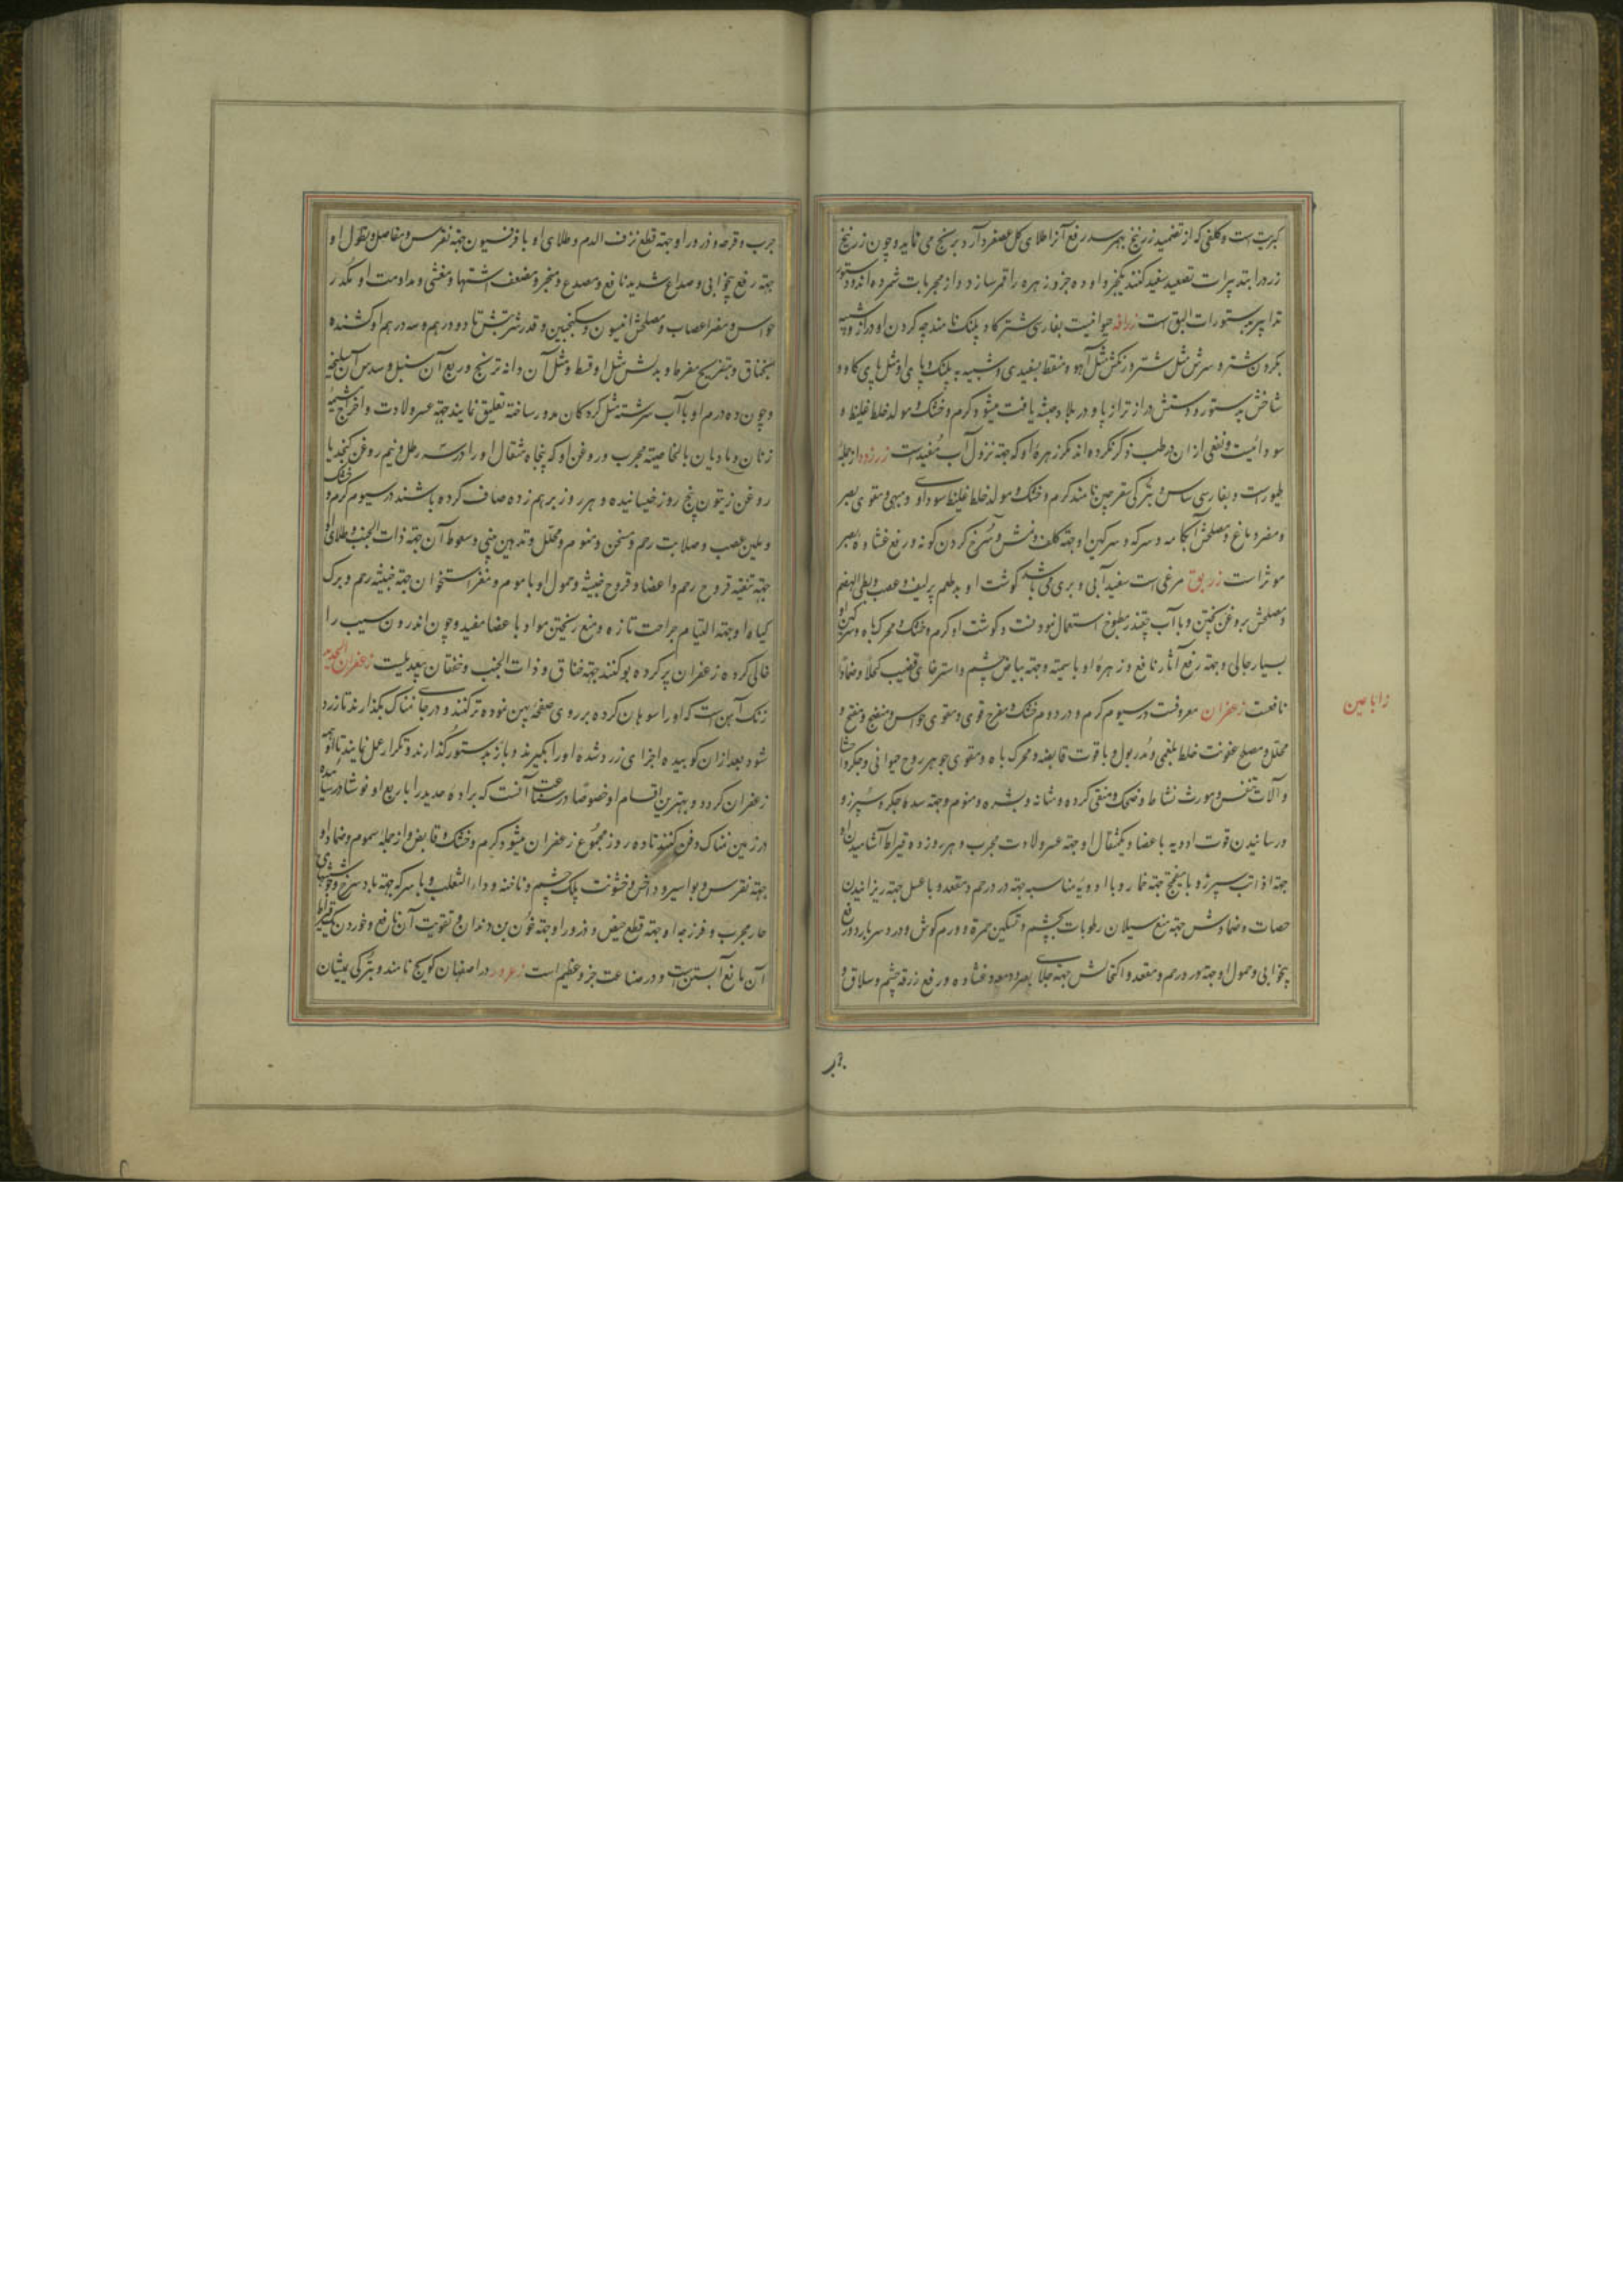 کبریت است و کلفی که از تضمید زرنیخ بهرسد رفع آنرا طلای کل عصفر و آرد برنج می نماید و چون زرنیخ
زرد را بتدبیرات تصعید سفید کنند یکجزو او ده جزو زهره را قمر سازد و از مجربات شمرده اند و دستور
تدابیر بدستورات البق است زرافه حیوانیست بفارسی شتر کاو پلنک نامند چه کردن او دراز و شبیه
بکردن شتر و سرش مثل شتر و رنکش مثل آهو و منقط بسفیدی و شبیه به پلنک و پای او مثل پای کاو و
شاخش بدستور و دستش دراز تر از پا و در بلاد حبشه یافت میشود کرم و خشک و مولد خلط غلیظ و
سودائیست و نفعی از ان در طب ذکر نکرده اند مکر زهرهٔ او که جهته نزول آب مفید است زرزور از جملهٔ
طیور است و بفارسی سار و بترکی سقرچین نامند کرم و خشک و مولد خلط غلیظ سوداوی و مبهی و مقوی بصر
و مضر دماغ و مصلحش آبکامه و سرکه و سرکین او جهته کلف و نمش و سرخ کردن کونه و رفع غشاوه بصر
موثر است زریق مرغی است سفید آبی و بری می باشد کوشت او بد طعم پر لیف و عصب و بطی الهضم
و مصلحش بروغن پختن و با آب چقندر مطبوخ استعمال نمودنست و کوشت او کرم و خشک و محرک باه و سرکین او
بسیار جالی و جهته رفع آثار نافع و زهرهٔ او با سمیته و جهته بیاض چشم و استرخای قضیب کحلا و ضمادا
نافعست زعفران معروفست در سیوم کرم و در دوم خشک و مفرح قوی و مقوی حواس و منضج و مفتح و
محلل و مصلح عفونت خلط بلغمی و مدر بول و با قوت قابضه و محرک باه و مقوی جوهر روح حیوانی و جکر و احشا
و آلات تنفس و مورث نشاط و ضحک و منقی کرده و مثانه و بشره و منوم و جهته سده جکر و سپرز و
و رسانیدن قوت ادویه باعضا و یکمثقال او جهته عسر ولادت مجرب و هر روز ده قیراط آشامیدن او
جهته اذابت سپرز و با میفختج جهته خمار و با ادویهٔ مناسبه جهته درد رحم و مقعد و با عسل جهته ریزانیدن
حصات و ضمادش جهته منع سیلان رطوبات بچشم و تسکین حمرة و ورم کوش و درد سر بارد و رفع
بیخوابی و حمول او جهته ورم رحم و مقعد و اکتحالش جهته جلای بصر و دمعه و غشاوه و رفع زرقه چشم و سلاق و
زاباعین
جرب
جرب و قرحه و ذرور او جهته قطع نزف الدم و طلای او با فرفیون جهته نقرس و مفاصل و نطول او
جهته رفع بیخوابی و صداع شدید نافع و مصدع و مبخر و مضعف اشتها و مغثی و مداومت او مکدر
حواس و مضر اعصاب و مصلحش انیسون و سکنجبین و قدر شربتش تا دو درهم و سه درهم او کشنده
بخناق و بتفریح مفرط و بدلش مثل او قسط و مثل آن دانه ترنج و ربع آن سنبل و سدس آن سلیخه
و چون ده درم او با آب سرشته مثل کردکان مدور ساخته تعلیق نمایند جهته عسر ولادت و اخراج مشیمه
زنان و مادیان بالخاصیته مجرب و روغن او که پنجاه مثقال او را در سه رطل و نیم روغن کنجد یا
روغن زیتون پنج روز خیسانیده و هر روز برهم زده صاف کرده باشند در سیوم کرم و خشک
و ملین عصب و صلابت رحم و مسخن و منوم و محلل و تدهین بینی و سعوط آن جهته ذات الجنب و طلای او
جهته تنقیه قروح رحم و اعضا و قروح خبیثه و حمول او با موم و مغز استخوان جهته خبیثه رحم و برک
کیاه او جهته التیام جراحت تازه و منع ریختن مواد باعضا مفید و چون اندرون سیب را
خالی کرده زعفران پر کرده بو کنند جهته خناق و ذات الجنب و خفقان بیعدیلست زعفران الحدید
زنک آهن است که او را سوهان کرده بر روی صفحهٔ پهن نموده تر کنند و در جای نمناک بکذارند تا زرد
شود بعد از ان کوبیده اجزای زرد شده او را بکیرند و باز بدستور کذارند و تکرار عمل نمایند تا همه او
زعفران کردد و بهترین اقسام او خصوصا در صناعت آنست که براده حدید را با ربع او نوشادر سائیده
در زمین نمناک دفن کنند تا ده روز مجموع زعفران میشود کرم و خشک و قابض و از جملهٔ سموم و ضماد او
جهته نقرس و بواسیر و داخس و خشونت پلک چشم و ناخنه و داء الثعلب و با سرکه جهته باد سرخ و جوشهای
حار مجرب و فرزجه او جهته قطع حیض و ذرور او جهته خون بن دندان و تقویت آن نافع و خوردن یکقیراط
آن مانع آبستن است و در صناعت جزو عظیم است زعرور در اصفهان کویج نامند و بترکی یمیشان